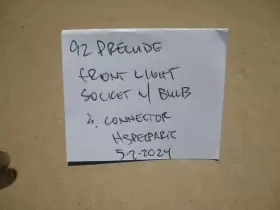 92 PRELUDE
FRONT LIGHT
SOCKET W/ BULB
& CONNECTOR
HSPECPARTS
5-2-2024